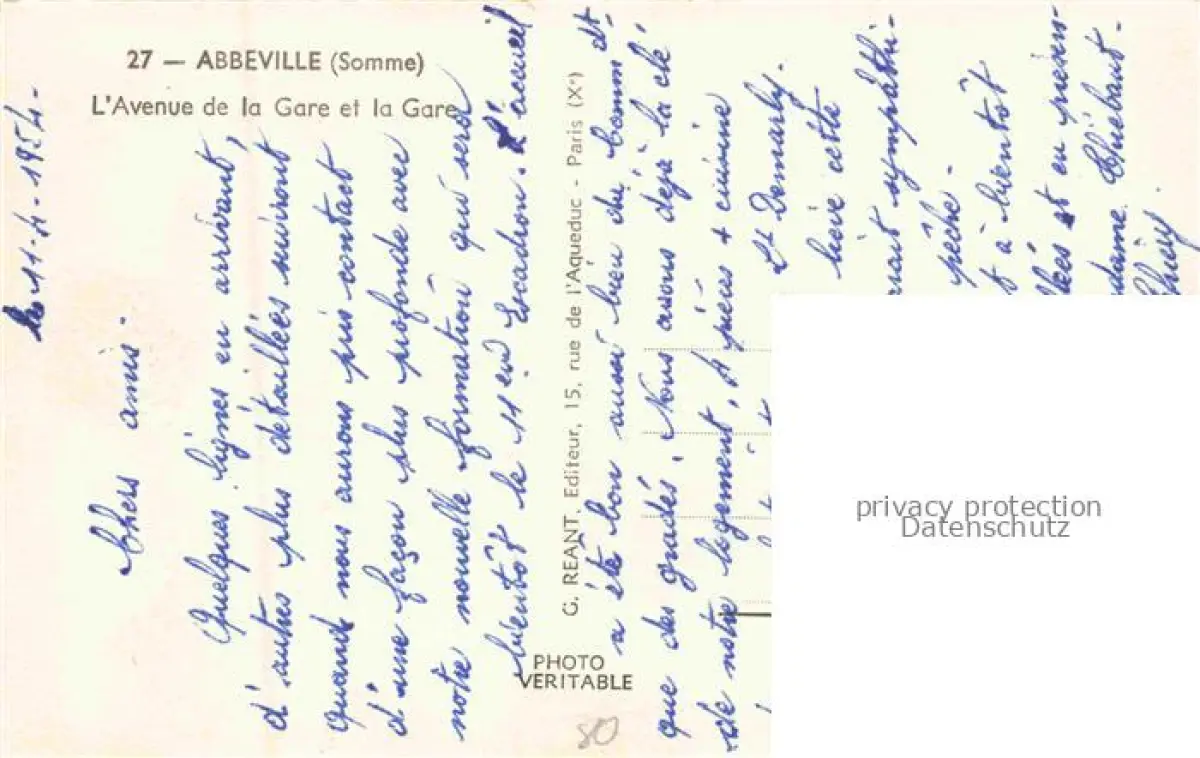 27 — ABBEVILLE (Somme)
L'Avenue de la Gare et la Gare
le 11-4-1954-
Chers amis-
Quelques lignes en arrivant,
d'autres plus détaillées suivront
quand nous aurons pris contact
d'une façon plus profonde avec
notre nouvelle formation qui sera
bientôt le 11 eme Escadron. L'accueil
a été bon aussi bien du comm dt
que des gradés. Nous avons déjà la clé
de notre logement, 4 pièces + cuisine
et Demarly.
cette
sympathi-
pêche-
à bientôt
et en
Thiébaut-
G. RÉANT, Editeur, 15, rue de l'Aqueduc - Paris (Xe)
PHOTO
VERITABLE
80
privacy protection
Datenschutz